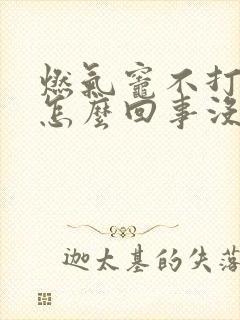 燃氣竈不打
怎麼回事沒
迦太基的失落